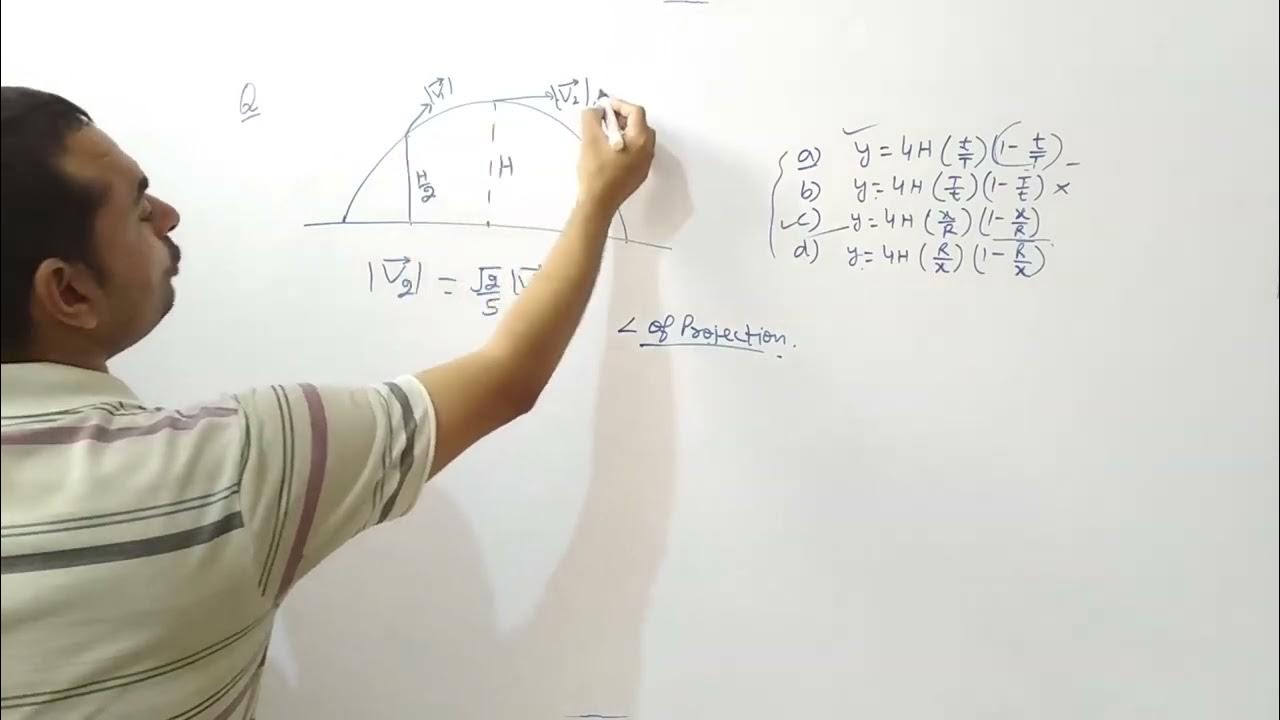 Q
|V⃗₁|
|V⃗₂|
H/2
H
|V⃗₂| = √2/5 |V
a) y = 4H (t/T)(1 - t/T)
b) y = 4H (T/t)(1 - T/t) ×
c) y = 4H (x/R)(1 - x/R)
d) y = 4H (R/x)(1 - R/x)
∠ of Projection.